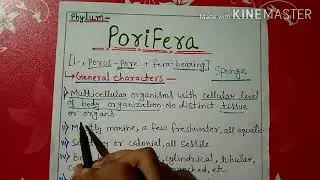 Made with KINEMASTER
Phylum:
PoriFera
[L., Porus-Pore + fera-bearing]
Sponge
General characters
i) Multicellular organisms with cellular level
of body organization. No distinct tissue
or organs
ii) Mostly marine, a few freshwater, all aquatic
or colonial, all sessile
iv) cylindrical, tubular,
branched, etc